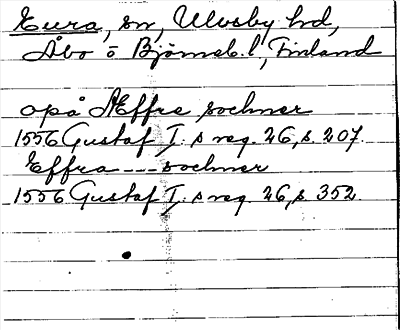 Eura, sn, Ulvsby hd,
Åbo o Björneb. l, Finland
opå Æffre sochner
1556 Gustaf I:s reg. 26, s. 207.
Effra --- sochner
1556 Gustaf I:s reg. 26, s. 352.